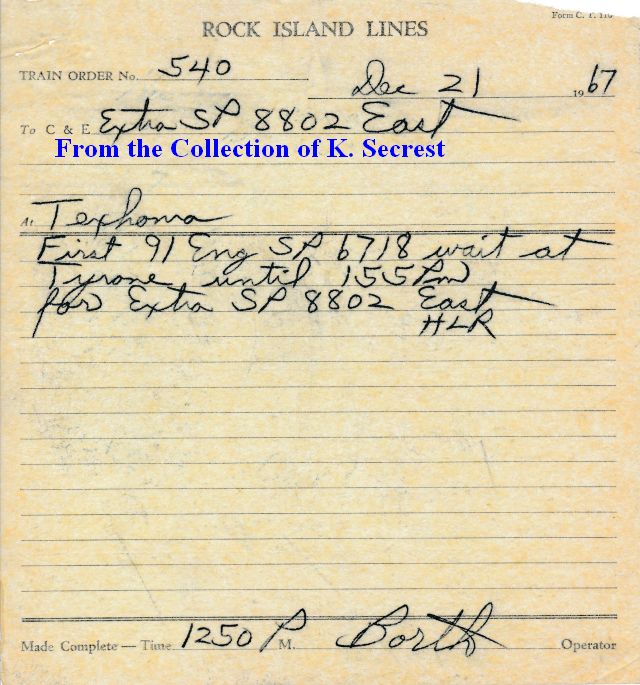 Form C. T. 110
ROCK ISLAND LINES
TRAIN ORDER No. 540
Dec 21 1967
To C & E Extra SP 8802 East
From the Collection of K. Secrest
At Texhoma
First 91 Eng SP 6718 wait at
Tyrone until 155 PM
for Extra SP 8802 East
HLR
Made Complete — Time 1250 P M. Borth Operator